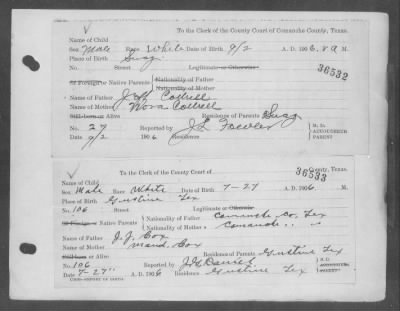 To the Clerk of the County Court of Comanche County, Texas.
Name of Child
Sex Male Race White Date of Birth 9/2 A. D. 1906. 8 A M.
Place of Birth Sugg 36532
No. Street Legitimate or Otherwise
Of Foreign or Native Parents Nationality of Father
Nationality of Mother
Name of Father J. H. Cottrell
Name of Mother Nora Cottrell
Still-born or Alive Residence of Parents Sugg
No. 27 Reported by J L Fowler M. D.
ACCOUCHEUR
PARENT
Date 9/2 1906 Residence
To the Clerk of the County Court of County, Texas.
36533
Name of Child
Sex Male Race White Date of Birth 7-27 A. D. 1906. M.
Place of Birth Gustine Tex
No. 106 Street Legitimate or Otherwise
Of Foreign or Native Parents Nationality of Father Comanche Co. Tex
Nationality of Mother Comanche " "
Name of Father J. J. Cox
Name of Mother Maud Cox
Still-born or Alive Residence of Parents Gustine Tex
No. 106 Reported by Daniel M. D.
ACCOUCHEUR
PARENT
Date 7-27" 1906 Residence Gustine Tex